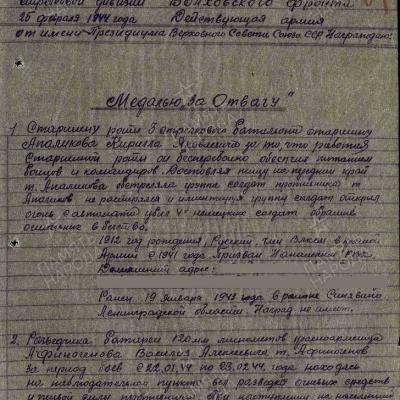 стрелковой дивизии Волховского фронта
25 февраля 1944 года Действующая армия
от имени Президиума Верховного Совета Союза ССР Награждаю:
"Медалью, За Отвагу"
1. Старшину роты 3 стрелкового батальона старшину
Апаликова Кирилла Яковлевича за то, что работая
Старшиной роты он бесперебойно обеспечил питанием
бойцов и командиров. Доставляя пищу на передний край
т. Апаликова обстреляла группа солдат противника т.
Апаликов не растерялся и группу солдат открыл
огонь с автомата убил 4х немецких солдат обратив
остальных в бегство.
1912 год рождения, Русский, член ВЛКСМ в Красной
Армии с 1941 года. Призван РВК
Домашний адрес:
Ранен 19 января 1943 года в районе Синявино
Ленинградской области. Наград не имеет.
2. Разведчика батареи 120 мм минометов красноармейца
Афиногенова Василия Алексеевича т. Афиногенов
за период боев с 22.01.44 по 23.02.44 года находясь
на наблюдательном пункте вел разведку огневых средств
и живой силы противника. При наступлении на населенный